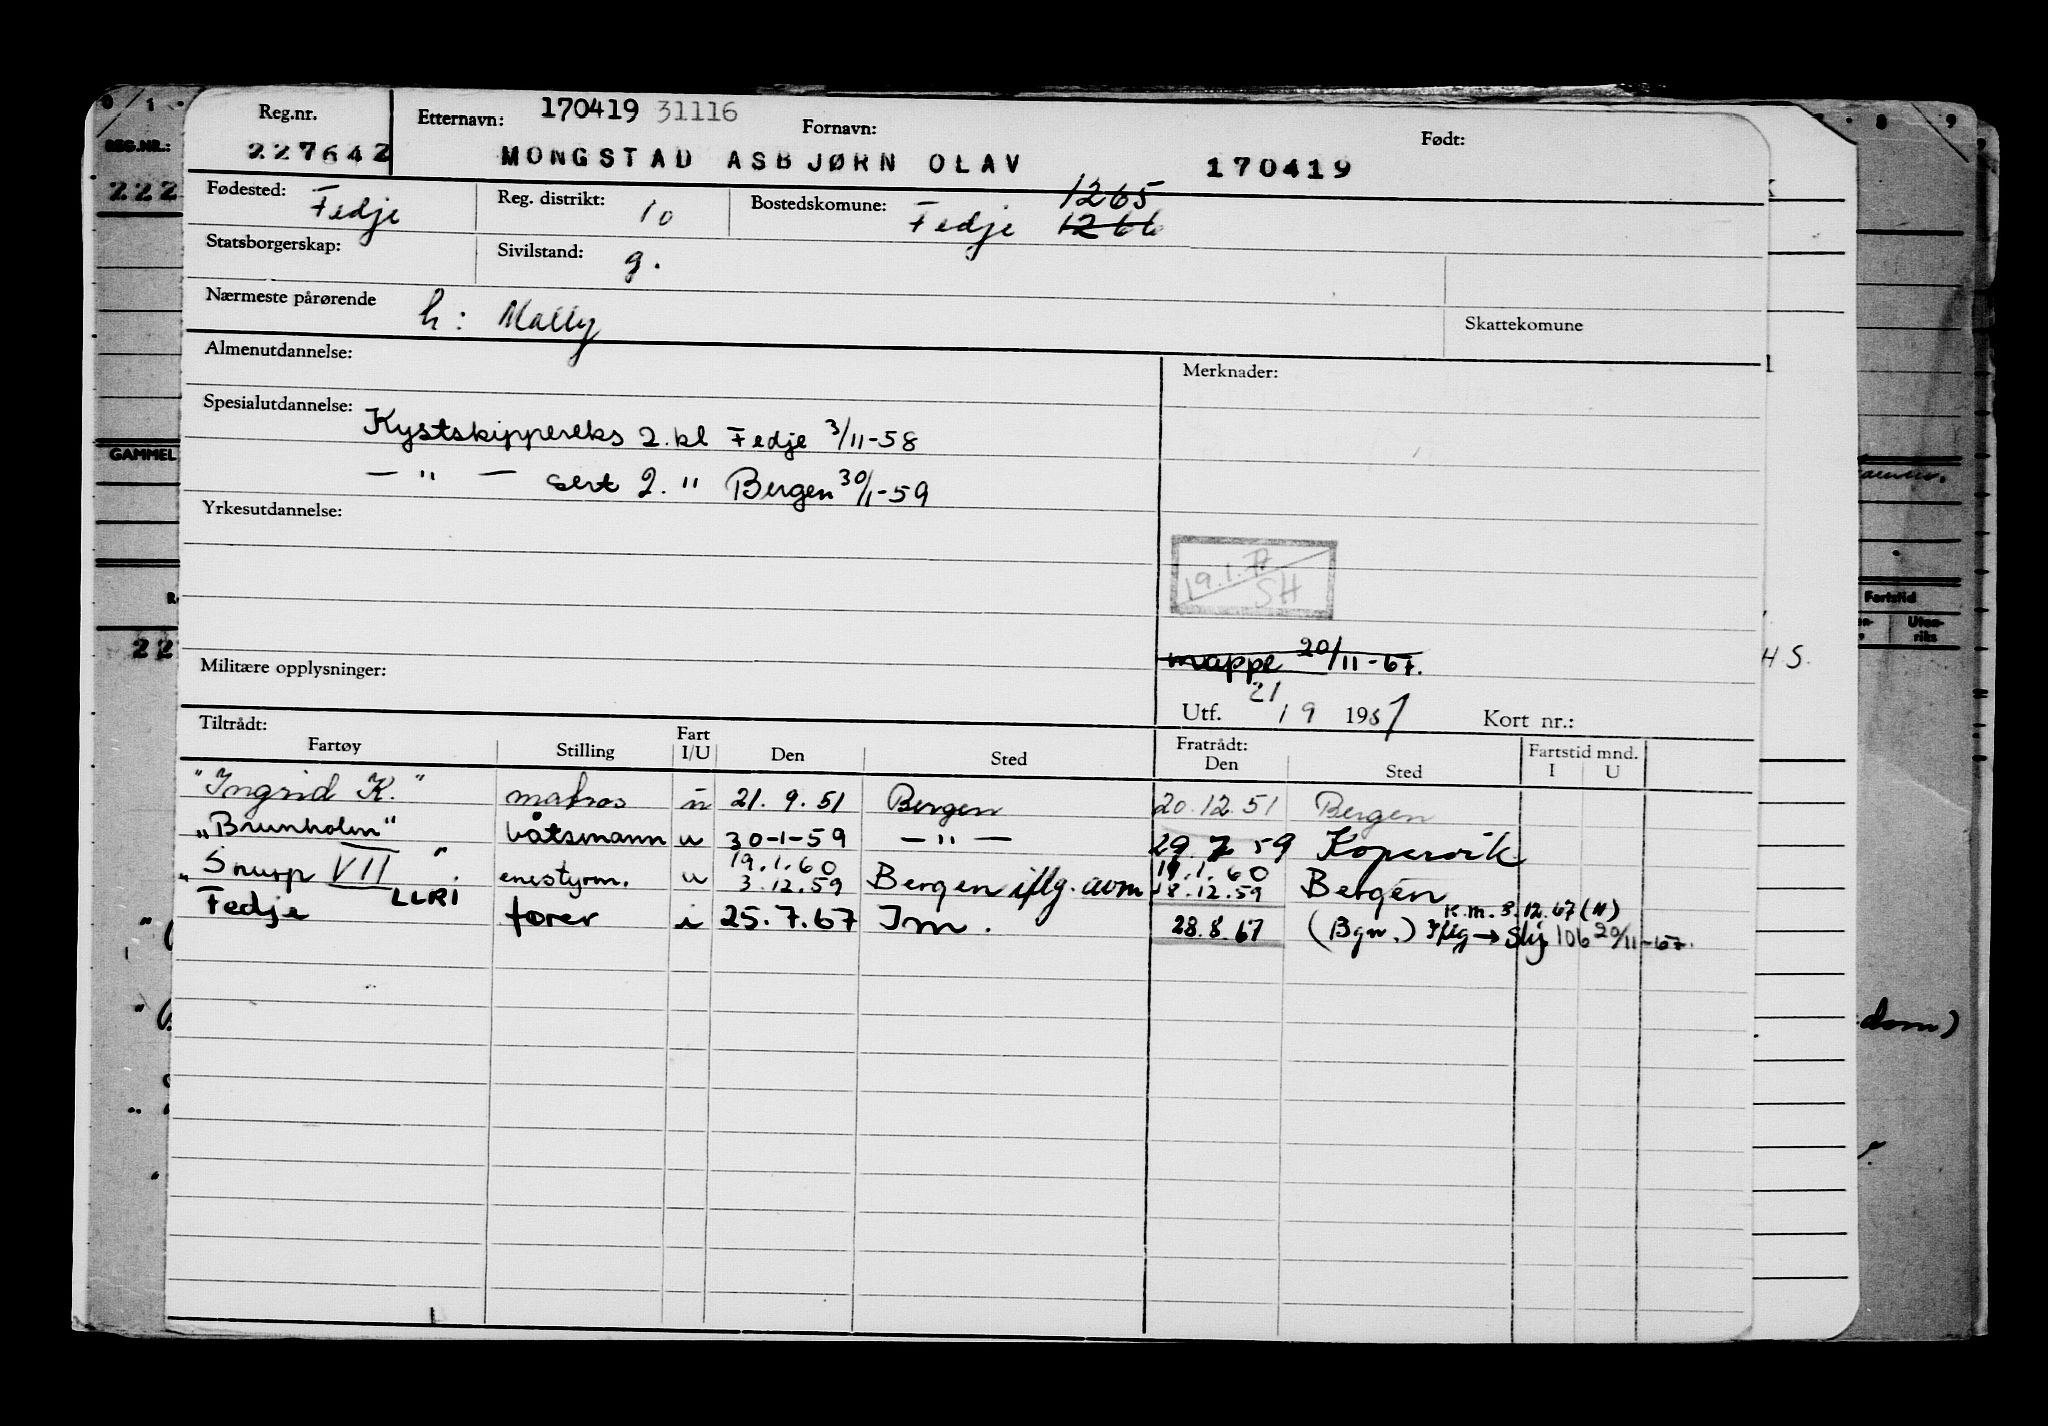 Reg.nr. Etternavn: 170419 31116 Fornavn: Født:
227642 MONGSTAD ASBJØRN OLAV 170419
Fødested: Fedje Reg. distrikt: 10 Bostedskomune: Fedje 1265 1266
Statsborgerskap: Sivilstand: g.
Nærmeste pårørende h: Mally Skattekomune
Almenutdannelse: Merknader:
Spesialutdannelse: Kystskippereks 2. kl Fedje 3/11-58
— " — sert 2. " Bergen 30/1-59
Yrkesutdannelse:
19.1.77
SH
mappe 20/11-67.
Militære opplysninger:
Utf. 21/9 1951 Kort nr.:
Tiltrådt: Fratrådt: Fartstid mnd.
Fartøy Stilling Fart I/U Den Sted Den Sted I U
"Ingrid K." matros u 21. 9. 51 Bergen 20.12.51 Bergen
"Brunholm" båtsmann u 30-1-59 — " — 29. 7. 59 Kopervik
"Snurp VII" enestyrm. u 19.1.60 3.12.59 Bergen iflg. avm 19.1.60 18.12.59 Bergen
Fedje LLRI fører i 25.7.67 Im. 28.8.67 (Bgn.) Iflg → Slj 106 20/11-67.
K.m. 8.12.67 (H)
REG.NR.:
222
GAMMEL
22
Fartstid
Uten-
riks
H S.
dom)